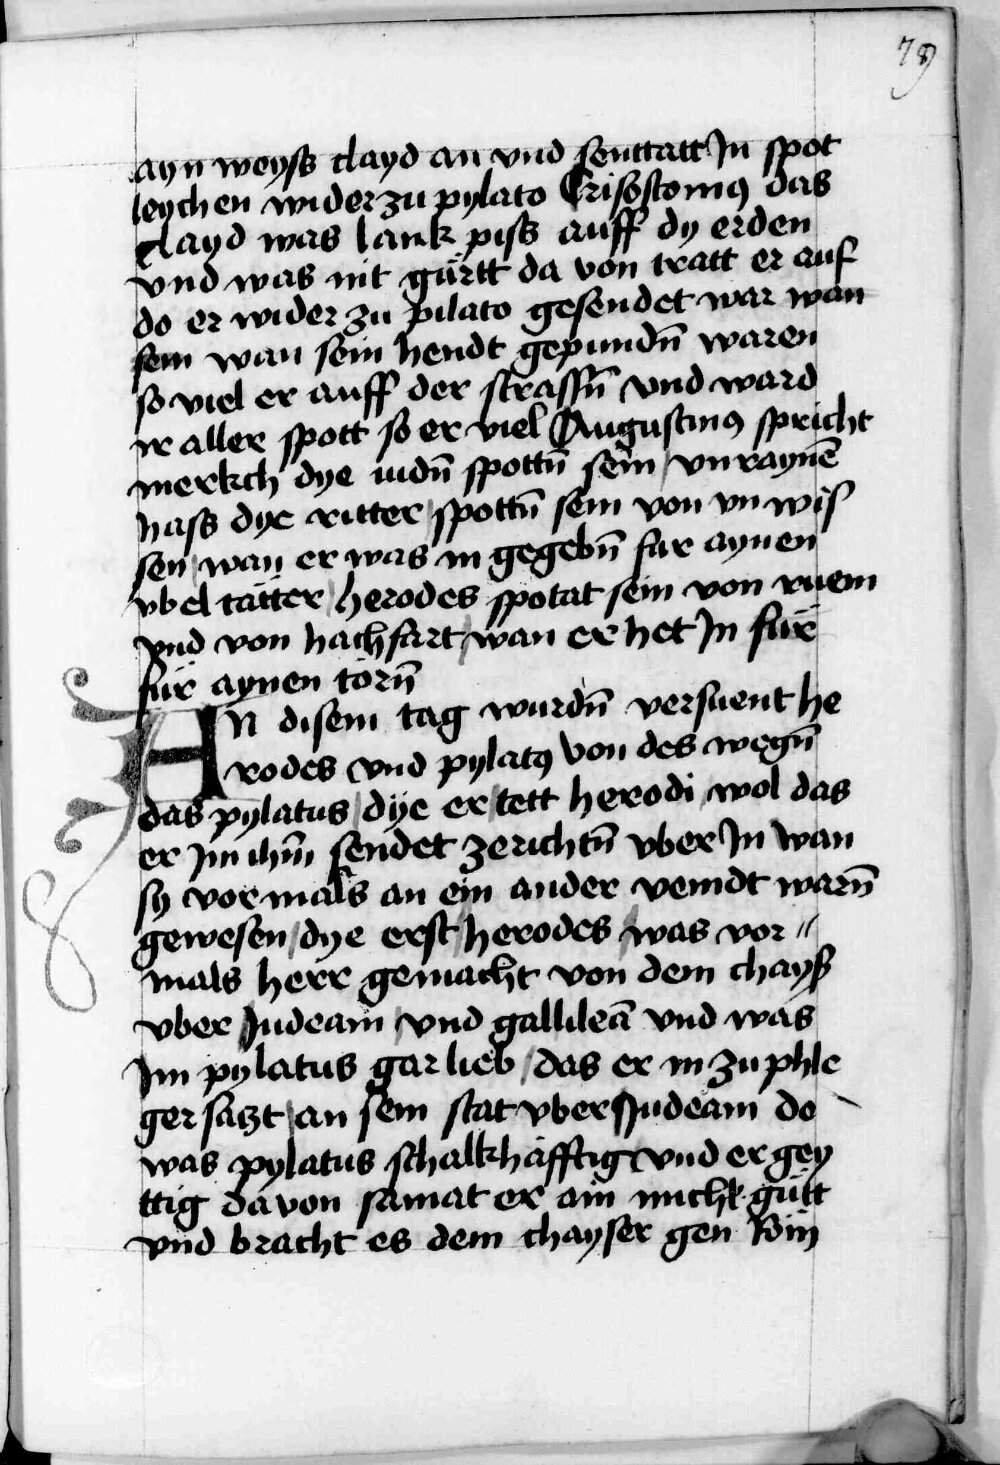 79
ayn weyss clayd an vnd senttatt Jn spot
leychen wider zu pylato Crisostomꝰ das
clayd was lank piss auff dy erden
vnd was nit gürtt da von tratt er auf
do er wider zu pilato gesendet war wan
sein wan sein hendt gepundn̄ waren
so viel er auff der strassn̄ vnd ward
ir aller spott so er viel Augustinꝰ spricht
merkch dye iudn̄ spottn̄ sein vnraynē
hass dye ritter spottn̄ sein von vn wis
sen wan er was in gegebn̄ fur aynen
vbel tätter herodes spotat sein von ruem
vnd von hachfart wan er het Jn für
für aynen törn̄
AN disem tag wurdn̄ versuent he
rodes vnd pylatꝰ von des wegn̄
das pylatus dye er tett herodi wol das
er Jm ihm̄ sendet zerichtn̄ vber Jn wan
sy vormals an ein ander veindt warn̄
gewesen dye erst herodes was vor //
mals herr gemacht von dem chayß
vber Judeam vnd gallileā vnd was
Jm pylatus gar lieb das er in zu phle
ger satzt an sein stat vber Judeam do
was pylatus schalkhäfftig vnd er gey
ttig da von samat er ain michl gütt
vnd bracht es dem chayser gen Röm